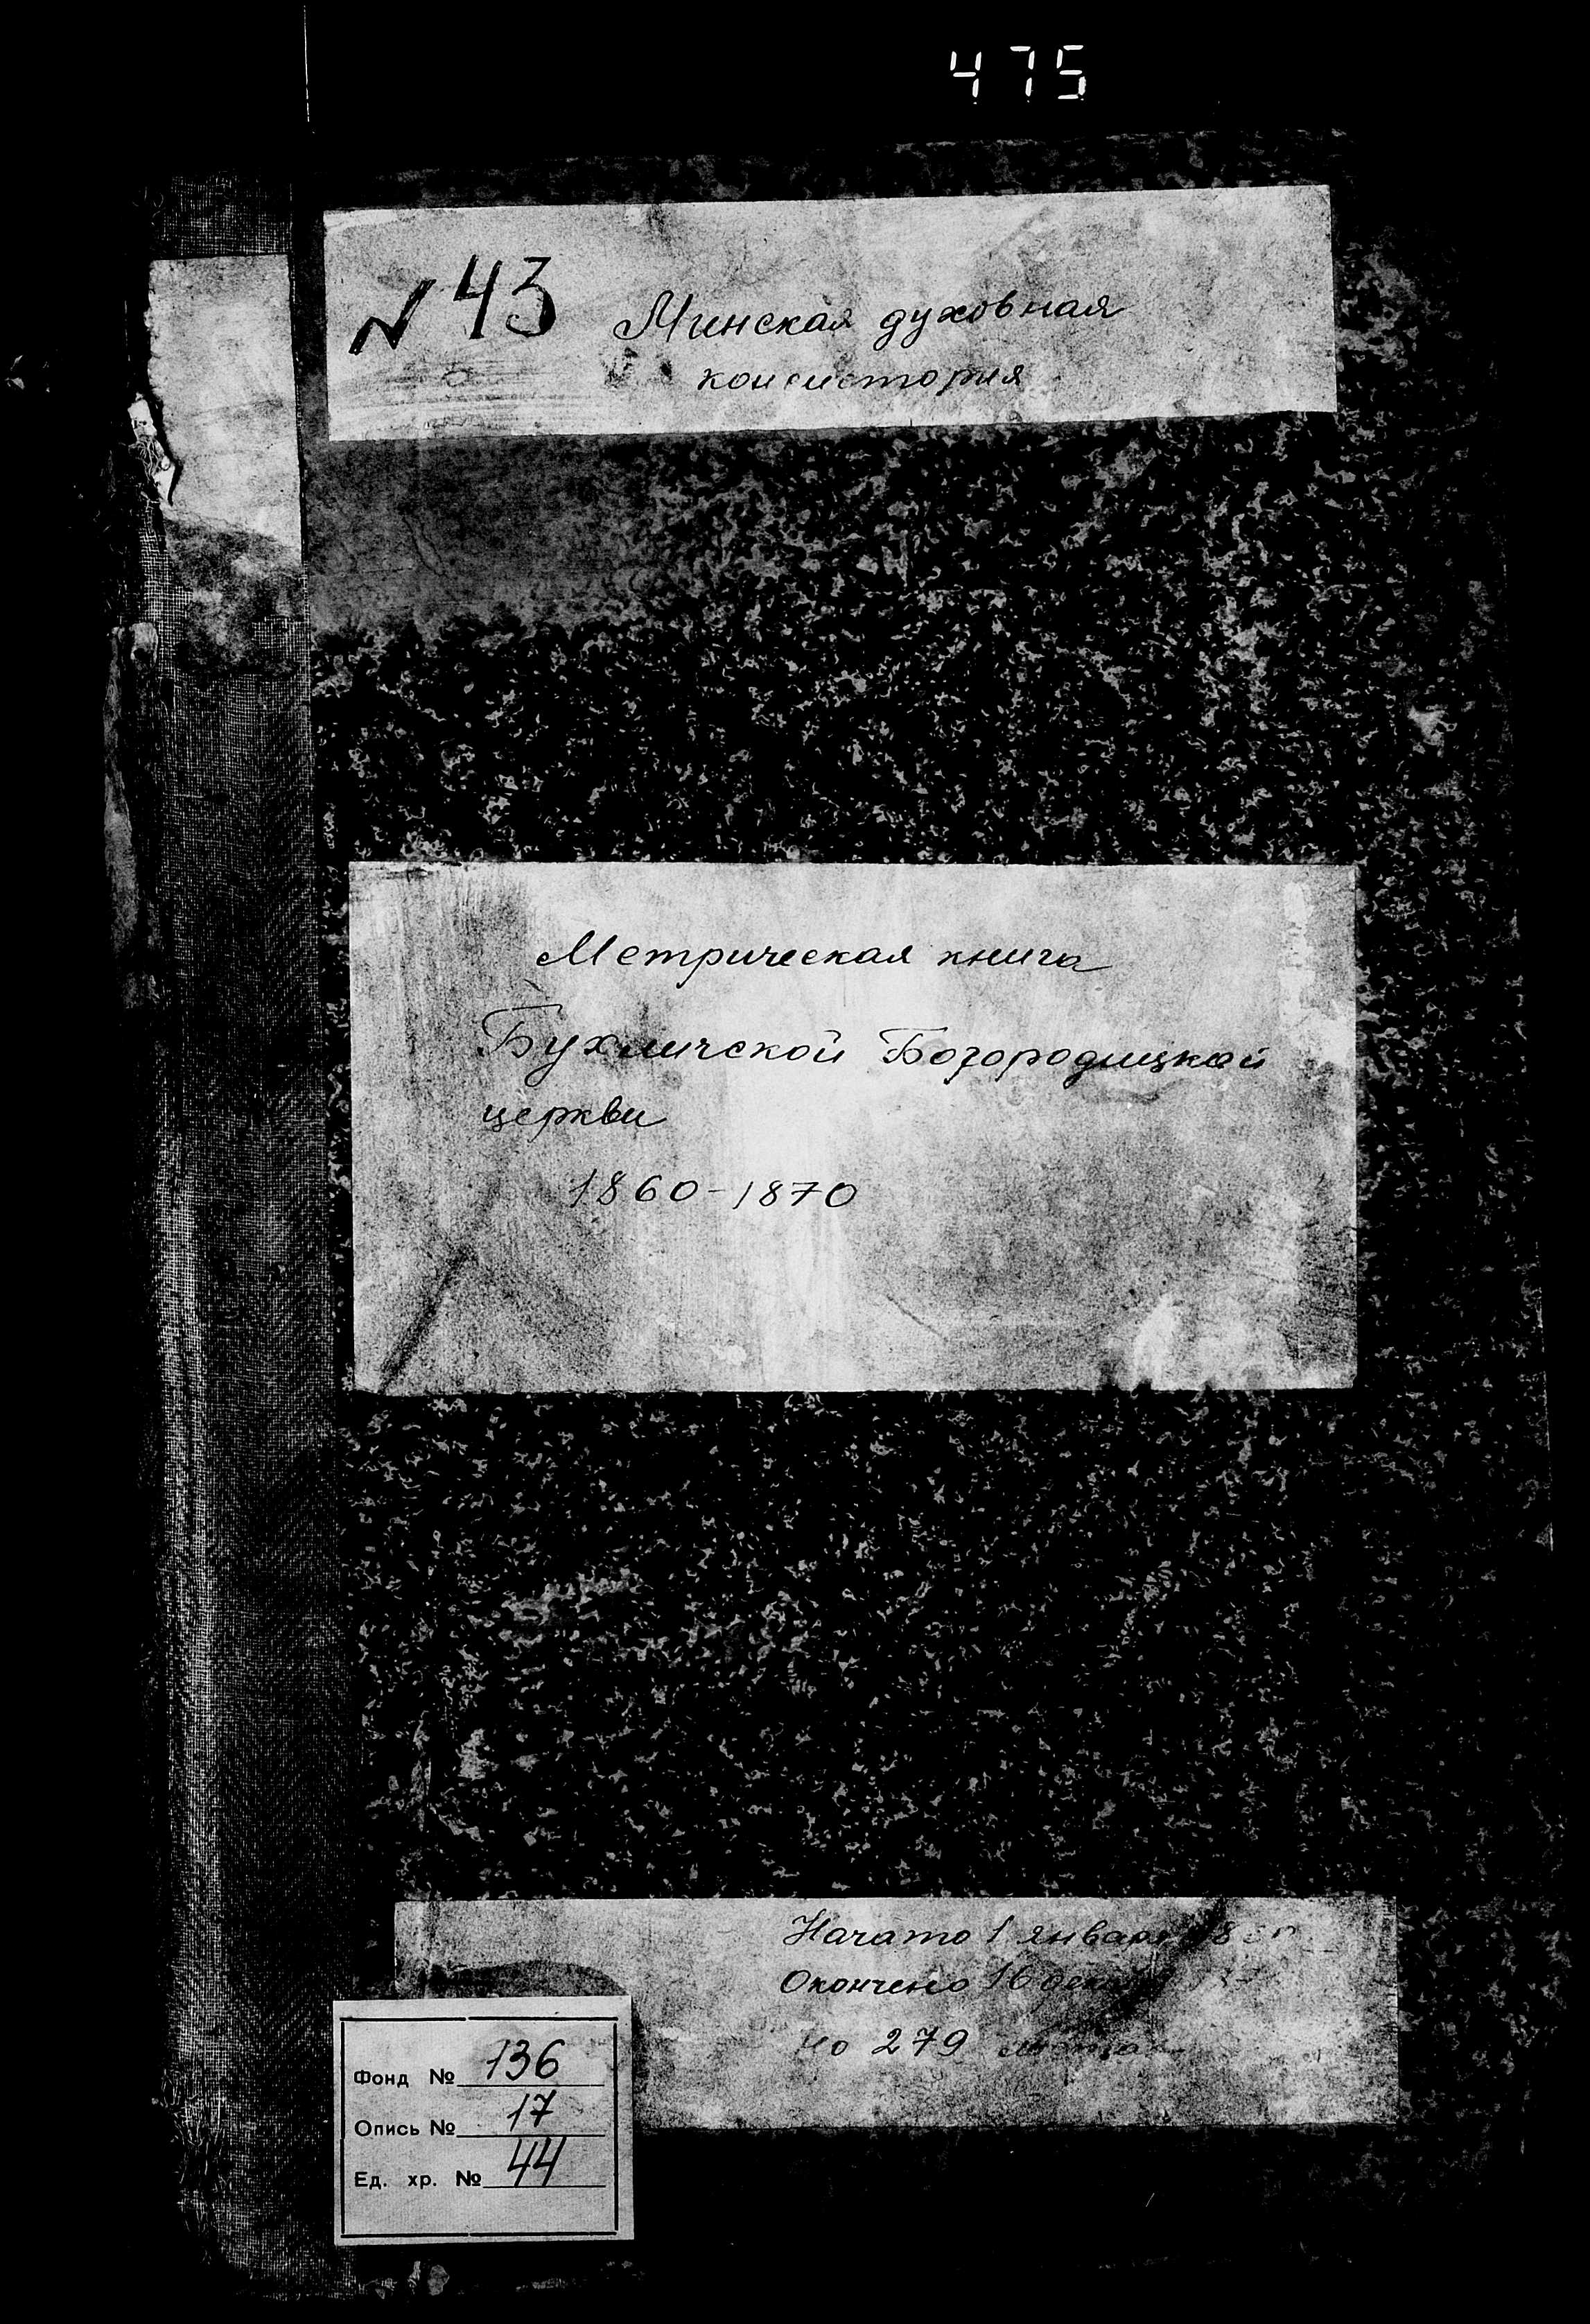 475
N 43 Минская духовная
консистория
Метрическая книга
Бухличской Богородицкой
церкви
1860-1870
Начато 1 января
Окончено 16
На 279
Фонд № 136
Опись № 17
Ед. хр. № 44